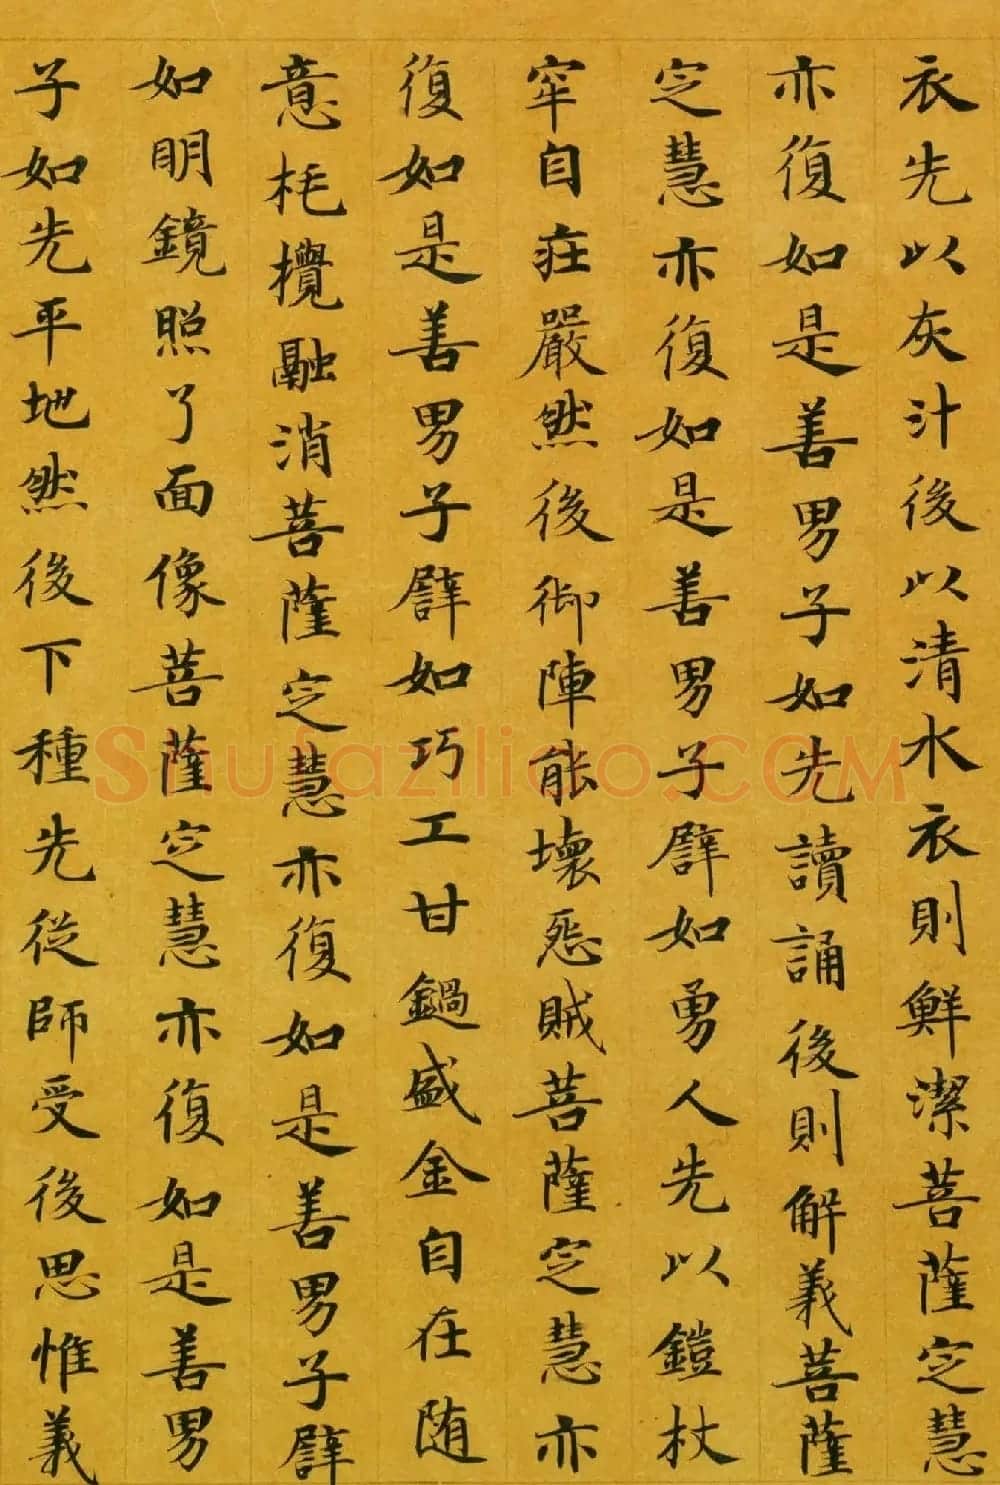 衣先以灰汁後以清水衣則鮮潔菩薩定慧
亦復如是善男子如先讀誦後則解義菩薩
定慧亦復如是善男子譬如勇人先以鎧杖
牢自莊嚴然後御陣能壞惡賊菩薩定慧亦
復如是善男子譬如巧工甘鍋盛金自在随
意枆攪融消菩薩定慧亦復如是善男子譬
如明鏡照了面像菩薩定慧亦復如是善男
子如先平地然後下種先從師受後思惟義
Shufaziliao.COM